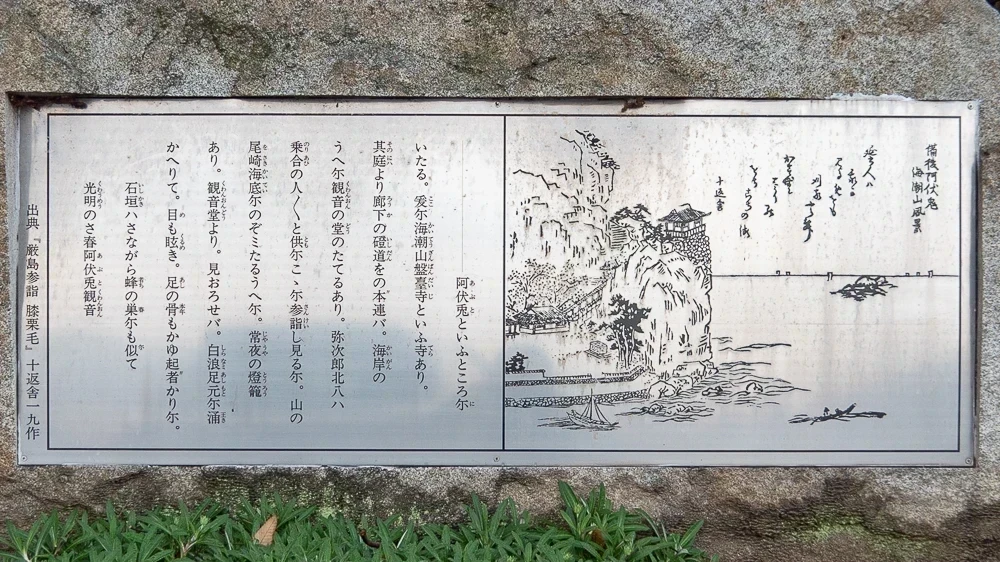 備後阿伏兎
海潮山風景
十返舎
阿伏兎といふところ尓
いたる。爰尓海潮山盤臺寺といふ寺あり。
其庭より廊下の磴道をの本連バ。海岸の
うへ尓観音の堂のたてるあり。弥次郎北八ハ
乗合の人〳〵と供尓こゝ尓参詣し見る尓。山の
尾崎海底尓のぞミたるうへ尓。常夜の燈籠
あり。観音堂より。見おろせバ。白浪足元尓涌
かへりて。目も眩き。足の骨もかゆ起者かり尓。
石垣ハさながら蜂の巣尓も似て
光明のさ春阿伏兎観音
出典『厳島参詣 膝栗毛』 十返舎一九作